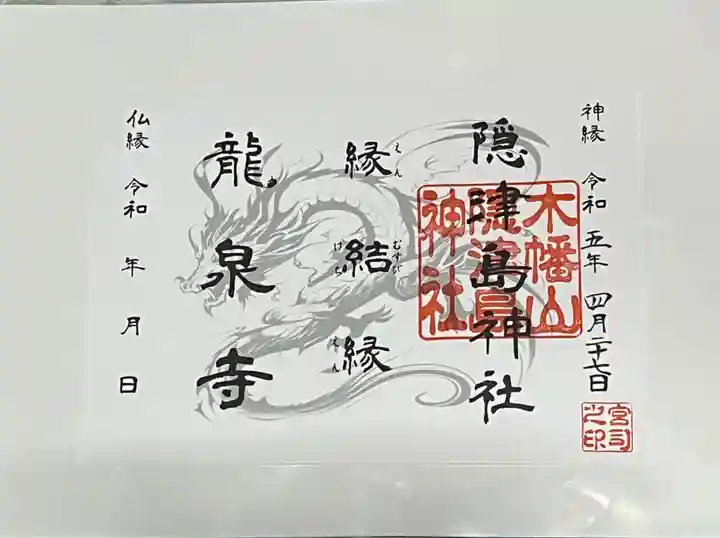 神縁 令和五年 四月二十七日
宮司
之印
隠津島神社
木幡山
隠津島
神社
縁結縁
えん むすび
けち えん
龍泉寺
仏縁 令和 年 月 日